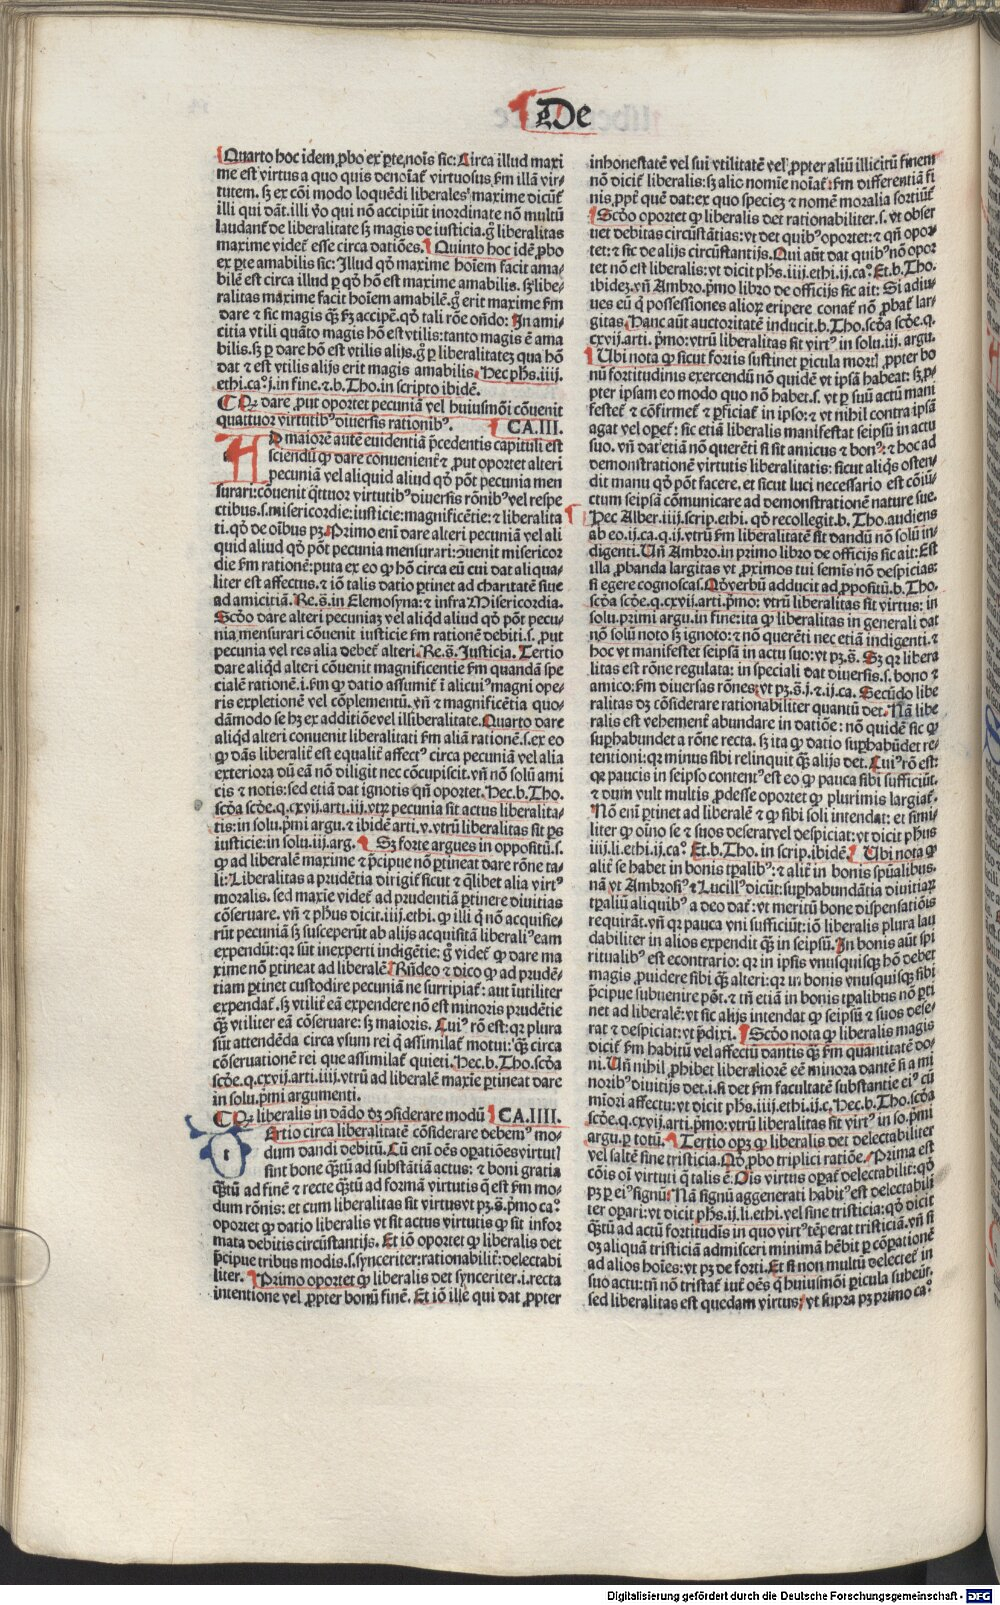 De
Quarto hoc idem ꝓbo ex ꝑte noīs sic: Circa illud maxi
me est virtus a quo quis denoīat᷑ virtuosus ẜm illā vir⸗
tutem. sꝫ ex cōi modo loquēdi liberales maxime dicūt᷑
illi qui dāt. illi ꝟo qui nō accipiūt inordinate nō multū
laudant᷑ de liberalitate sꝫ magis de iusticia. g̊ liberalitas
maxime videt᷑ esse circa datiōes. Quinto hoc idē ꝓbo
ex ꝑte amabilis sic: Illud qd̓ maxime hoīem facit ama⸗
bilē est circa illud ꝑ qd̓ hō est maxime amabilis. sꝫ libe⸗
ralitas maxime facit hoīem amabilē. g̊ erit maxime ẜm
dare ⁊ sic magis qꝫ̄ ẜm accipe. qd̓ tali rōe oñdo: In ami⸗
citia vtili quāto magis hō est vtilis: tanto magis ē ama
bilis. sꝫ ꝑ dare hō est vtilis alijs. g̊ ꝑ liberalitatē qua hō
dat ⁊ est vtilis alijs erit magis amabilis. Hec phs̄. iiij.
ethi. ca°. j. in fine. ⁊ b. Tho. in scripto ibidē.
Qꝫ dare ꝓut oportet pecuniā vel huiusmōi cōuenit
quattuor virtutibꝰ diuersis rationibꝰ. CA. III.
AD maiorē autē euidentiā p̄cedentis capituli est
sciendū ꝙ dare conuenient᷑ ⁊ ꝓut oportet alteri
pecuniā vel aliquid aliud qd̓ pōt pecunia men
surari: cōuenit q̄ttuor virtutibꝰ diuersis rōnibꝰ vel respe
ctibus. s. misericordie: iusticie: magnificētie: ⁊ liberalita
ti. qd̓ de oībus pꝫ. Primo eni dare alteri pecuniā vel ali
quid aliud qd̓ pōt pecunia mensurari: ꝯuenit misericor
die ẜm rationē: puta ex eo ꝙ hō circa eū cui dat aliqua⸗
liter est affectus. ⁊ iō talis datio ꝑtinet ad charitatē siue
ad amicitiā. Re. s̄. in Elemosyna: ⁊ infra Misericordia.
Scḋo dare alteri pecuniaꝫ vel aliqd̓ aliud qd̓ pōt pecu⸗
nia mensurari cōuenit iusticie ẜm rationē debiti. s. ꝓut
pecunia vel res alia debet᷑ alteri. Re. s̄. Justicia. Tertio
dare aliqd̓ alteri cōuenit magnificentie ẜm quandā spe
cialē rationē. i. ẜm ꝙ datio assumit᷑ ī alicuiꝰ magni ope⸗
ris expletionē vel cōplementū. vn̄ ⁊ magnificētia quo⸗
dāmodo se hꝫ ex additiōe vel illiberalitate. Quarto dare
aliqd̓ alteri conuenit liberalitati ẜm aliā rationē. s. ex eo
ꝙ dās liberalit᷑ est equalit᷑ affectꝰ circa pecuniā vel alia
exteriora dū eā nō diligit nec cōcupiscit. vn̄ nō solū ami
cis ⁊ notis: sed etiā dat ignotis qn̄ oportet. Hec. b. Tho.
scḋa scḋe. q. cxvij. arti. iij. vtꝝ pecunia sit actus liberalita⸗
tis: in solu. p̄mi argu. ⁊ ibidē arti. v. vtrū liberalitas sit ꝑs
iusticie: in solu. iij. arg. Sꝫ forte argues in oppositū. s.
ꝙ ad liberalē maxime ⁊ p̄cipue nō ꝑtineat dare rōne ta⸗
li: Liberalitas a prudētia dirigit᷑ sicut ⁊ q̄libet alia virtꝰ
moralis. sed maxīe videt᷑ ad prudentiā ꝑtinere diuitias
cōseruare. vn̄ ⁊ phus dicit. iiij. ethi. ꝙ illi q̄ nō acquisie⸗
rūt pecuniā sꝫ susceperūt ab alijs acquisitā liberaliꝰ eam
expendūt: qꝛ sūt inexperti indigētie: g̊ videt᷑ ꝙ dare ma
xime nō ꝑtineat ad liberalē. Rn̄deo ⁊ dico ꝙ ad prudē⸗
tiam ꝑtinet custodire pecuniā ne surripiat᷑: aut īutiliter
expendat᷑. sꝫ vtilit᷑ eā expendere nō est minoris prudētie
qꝫ̄ vtiliter eā cōseruare: sꝫ maioris. Cuiꝰ rō est: qꝛ plura
sūt attendēda circa vsum rei q̄ assimilat᷑ motui: qꝫ̄ circa
cōseruationē rei que assimilat᷑ quieti. Hec. b. Tho. scḋa
scḋe. q. cxvij. arti. iiij. vtrū ad liberalē maxīe ꝑtineat dare
in solu. p̄mi argumenti.
Qꝫ liberalis in dādo dꝫ ꝯsiderare modū CA. IIII.
Tertio circa liberalitatē cōsiderare debemꝰ mo⸗
dum dandi debitū. Cū eni oēs oꝑatiōes virtut᷑
sint bone qꝫ̄tū ad substātiā actus: ⁊ boni gratia
qꝫ̄tū ad finē ⁊ recte qꝫ̄tū ad formā virtutis q̄ est ẜm mo⸗
dum rōnis: et cum liberalitas sit virtus vt pꝫ. s̄. p̄mo ca°.
oportet ꝙ datio liberalis vt sit actus virtutis ꝙ sit infor
mata debitis circūstantijs. Et iō oportet ꝙ liberalis det
p̄cipue tribus modis. s. synceriter: rationabilit᷑: delectabi
liter. Primo oportet ꝙ liberalis det synceriter. i. recta
intentione vel ꝓpter bonū finē. Et iō ille qui dat ꝓpter
inhonestatē vel sui vtilitatē vel ꝓpter aliū illicitū finem
nō dicit᷑ liberalis: sꝫ alio nomīe noīat᷑: ẜm differentiā fi
nis, ꝓpt᷑ quē dat: ex quo specieꝫ ⁊ nomē moralia sortiūt᷑
Scḋo oportet ꝙ liberalis det rationabiliter. s. vt obser
uet debitas circūstātias: vt det quibꝰ oportet: ⁊ qn̄ opor⸗
tet: ⁊ sic de alijs circūstantijs. Qui aūt dat quibꝰ nō opor
tet nō est liberalis: vt dicit phs̄. iiij. ethi. ij. ca°. Et. b. Tho.
ibidē. vn̄ Ambro. p̄mo libro de officijs sic ait: Si adiu⸗
ues eū q̄ possessiones alioꝝ eripere conat᷑ nō ꝓbat᷑ lar⸗
gitas. Hanc aūt auctoritatē inducit. b. Tho. scḋa scḋe. q.
cxvij. arti. p̄mo: vtrū liberalitas sit virtꝰ in solu. iij. argu.
Ubi nota ꝙ sicut fortis sustinet ꝑicula mortꝭ ꝓpter bo
nū fortitudinis exercendū nō quidē vt ipsā habeat: sꝫ ꝓ⸗
pter ipsam eo modo quo nō habet. s. vt ꝑ suū actū mani
festet᷑ ⁊ cōfirmet᷑ ⁊ ꝑficiat᷑ in ipso: ⁊ vt nihil contra ipsā
agat vel oꝑet᷑: sic etiā liberalis manifestat seipsū in actu
suo. vn̄ dat etiā nō querēti si sit amicus ⁊ bonꝰ: ⁊ hoc ad
demonstrationē virtutis liberalitatis: sicut aliqs̄ osten⸗
dit manu qd̓ pōt facere. et sicut luci necessario est cōiū⸗
ctum seipsā cōmunicare ad demonstrationē nature sue.
Hec Alber. iiij. scrip. ethi. qd̓ recollegit. b. Tho. audiens
ab eo. ij. ca. q. ij. vtrū ẜm liberalitatē sit dandū nō solū in⸗
digenti. Un̄ Ambro. in primo libro de officijs sic ait: Est
illa ꝓbanda largitas vt ꝓximos tui semīs nō despicias:
si egere cognoscas. Qd̓ verbū adducit ad ꝓpositū. b. Tho.
scḋa scḋe. q. cxvij. arti. p̄mo: vtrū liberalitas sit virtus: in
solu. p̄mi argu. in fine: ita ꝙ liberalitas in generali dat
nō solū noto sꝫ ignoto: ⁊ nō querēti nec etiā indigenti. ⁊
hoc vt manifestet seipsā in actu suo: vt pꝫ. s̄. Sꝫ qꝛ libera
litas est rōne regulata: in speciali dat diuersis. s. bono ⁊
amico: ẜm diuersas rōnes: vt pꝫ. s̄. j. ⁊ ij. ca. Secūdo libe
ralitas dꝫ cōsiderare rationabiliter quantū det. Nā libe
ralis est vehement᷑ abundare in datiōe: nō quidē sic ꝙ
suꝑhabundet a rōne recta. sꝫ ita ꝙ datio suꝑhabūdet re⸗
tentioni: qꝛ minus sibi relinquit qꝫ̄ alijs det. Cuiꝰ rō est:
qꝛ paucis in seipso contentꝰ est eo ꝙ pauca sibi sufficiūt.
⁊ dum vult multis ꝓdesse oportet ꝙ plurimis largiat᷑.
Nō eni ꝑtinet ad liberalē ⁊ ꝙ sibi soli intendat: et simi⸗
liter ꝙ oīno se ⁊ suos deserat vel despiciat: vt dicit phus
iiij. li. ethi. ij. ca°. Et. b. Tho. in scrip. ibidē. Ubi nota ꝙ
alit᷑ se habet in bonis tꝑalibꝰ: ⁊ alit᷑ in bonis spūalibus.
nā vt Ambrosiꝰ ⁊ Lucillꝰ dicūt: suꝑhabundātia diuitiaꝝ
tꝑaliū aliquibꝰ a deo dat᷑: vt meritū bone dispensatiōis
requirāt. vn̄ qꝛ pauca vni sufficiūt: iō liberalis plura lau
dabiliter in alios expendit qꝫ̄ in seipsū. In bonis aūt spi
ritualibꝰ est econtrario: qꝛ in ipsis vnusquisqꝫ hō debet
magis ꝓuidere sibi qꝫ̄ alteri: qꝛ in bonis vnusquisqꝫ sibi
p̄cipue subuenire pōt. ⁊ tn̄ etiā in bonis tꝑalibus nō ꝑti
net ad liberalē: vt sic alijs intendat ꝙ seipsū ⁊ suos dese⸗
rat ⁊ despiciat: vt p̄dixi. Scḋo nota ꝙ liberalis magis
dicit᷑ ẜm habitū vel affectū dantis qꝫ̄ ẜm quantitatē do⸗
ni. Un̄ nihil ꝓhibet liberaliorē eē minora dantē si a mi
noribꝰ diuitijs det. i. si det ẜm facultatē substantie eiꝰ cū
miori affectu: vt dicit phs̄. iiij. ethi. ij. c. Hec. b. Tho. scḋa
scḋe. q. cxvij. arti. p̄mo: vtrū liberalitas sit virtꝰ in so. p̄mi
argu. ꝑ totū. Tertio opꝫ ꝙ liberalis det delectabiliter
vel saltē sine tristicia. Qd̓ ꝓbo triplici ratiōe. Prima est
cōis oī virtuti q̄ talis ē: Ois virtus oꝑat᷑ delectabilit᷑: qd̓
pꝫ ꝑ eiꝰ signū. Nā signū aggenerati habitꝰ est delectabili
ter oꝑari: vt dicit phs̄. ij. li. ethi. vel sine tristicia: qd̓ dicit
qꝫ̄tū ad actū fortitudis in quo virtꝰ tēperat tristiciā. vn̄ si
dꝫ aliquā tristiciā admisceri minimā hēbit ꝑ cōꝑationē
ad alios hoīes: vt pꝫ de forti. Et si non multū delectet᷑ in
suo actu: tn̄ nō tristat᷑ īut oēs q̄ huiusmōi ꝑicula subeūt.
sed liberalitas est quedam virtus: vt supra pꝫ primo ca°.
Digitalisierung gefördert durch die Deutsche Forschungsgemeinschaft - DFG